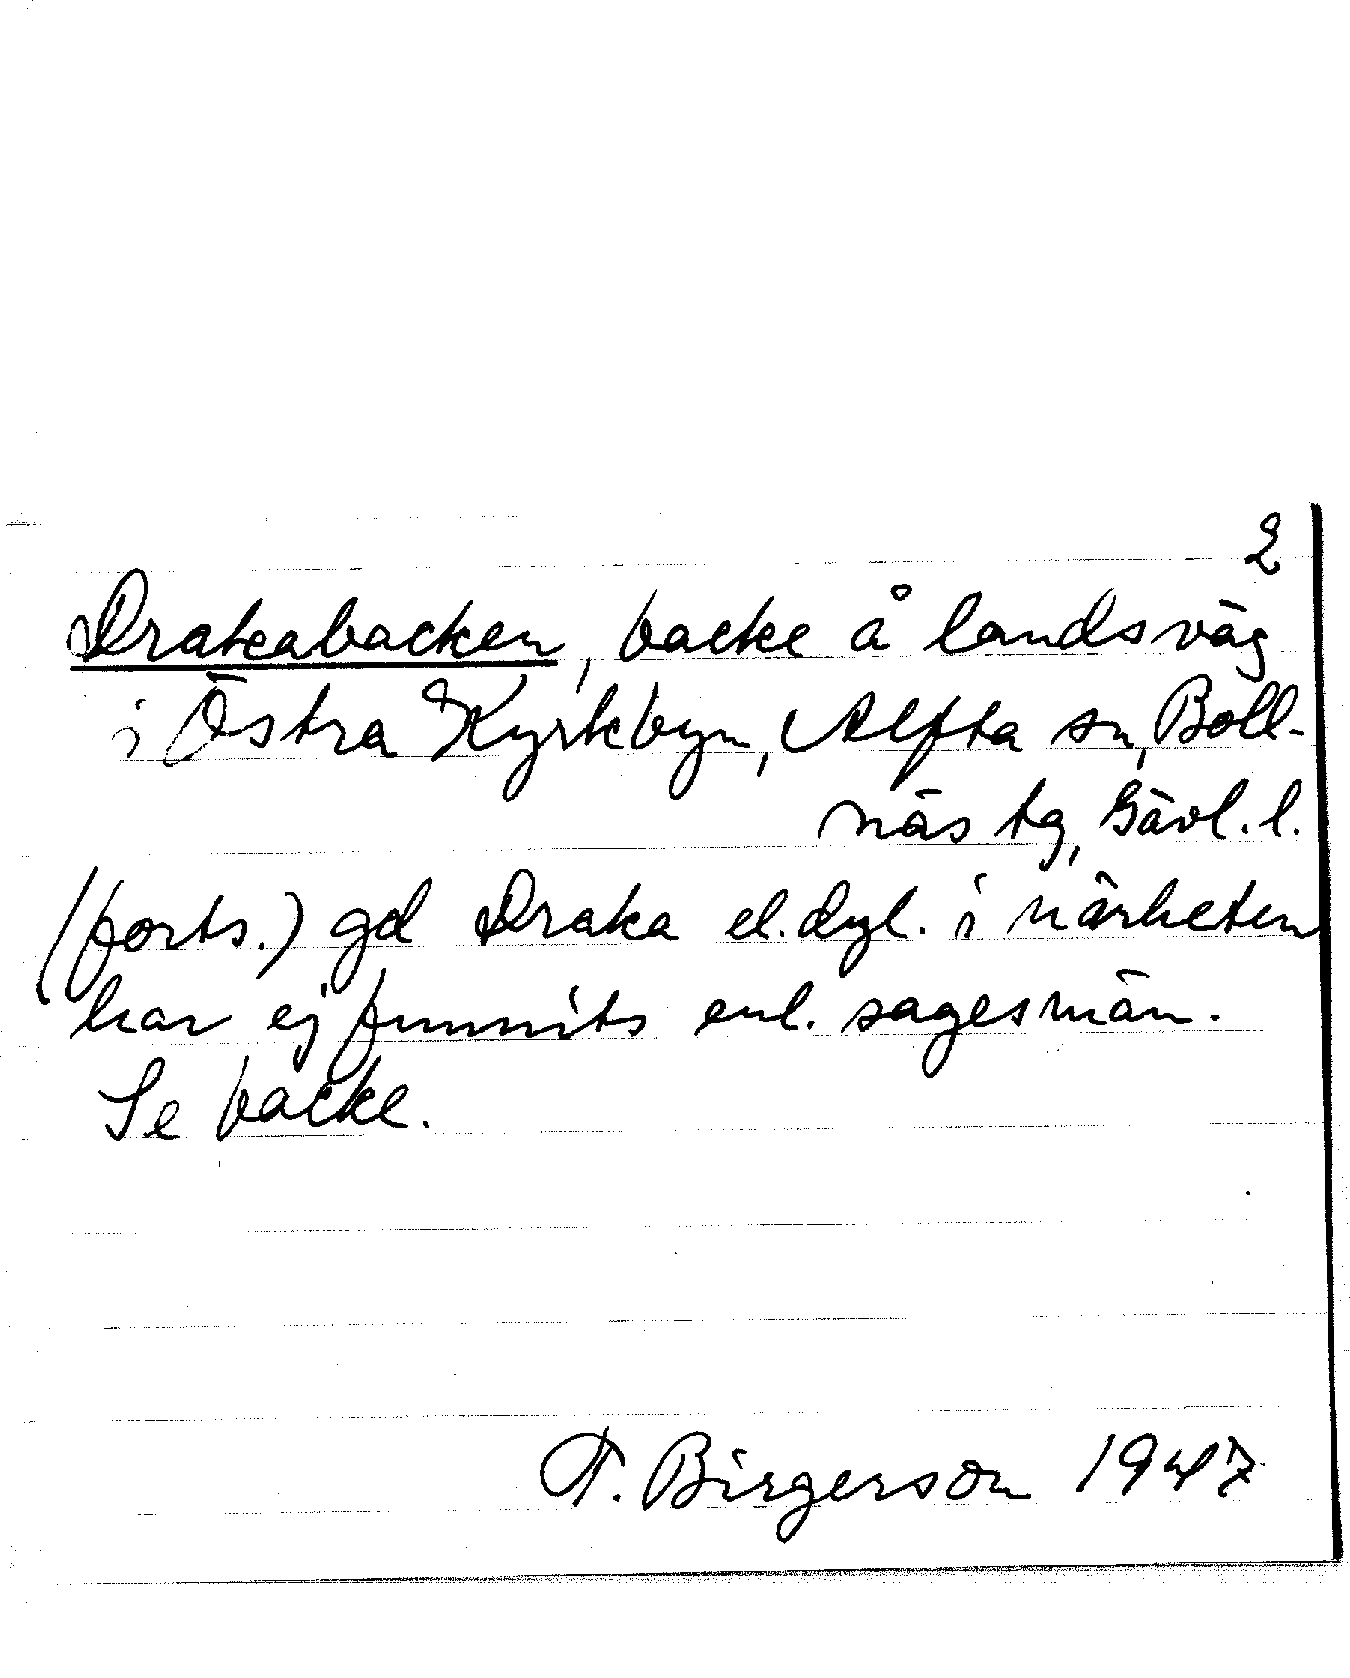 2
Drakabacken, backe å landsväg
i Östra Kyrkbyn, Alfta sn, Boll-
näs tg, Gävl. l.
(forts.) gd Draka el. dyl. i närheten
har ej funnits enl. sagesmän.
Se backe.
F. Birgerson 1947